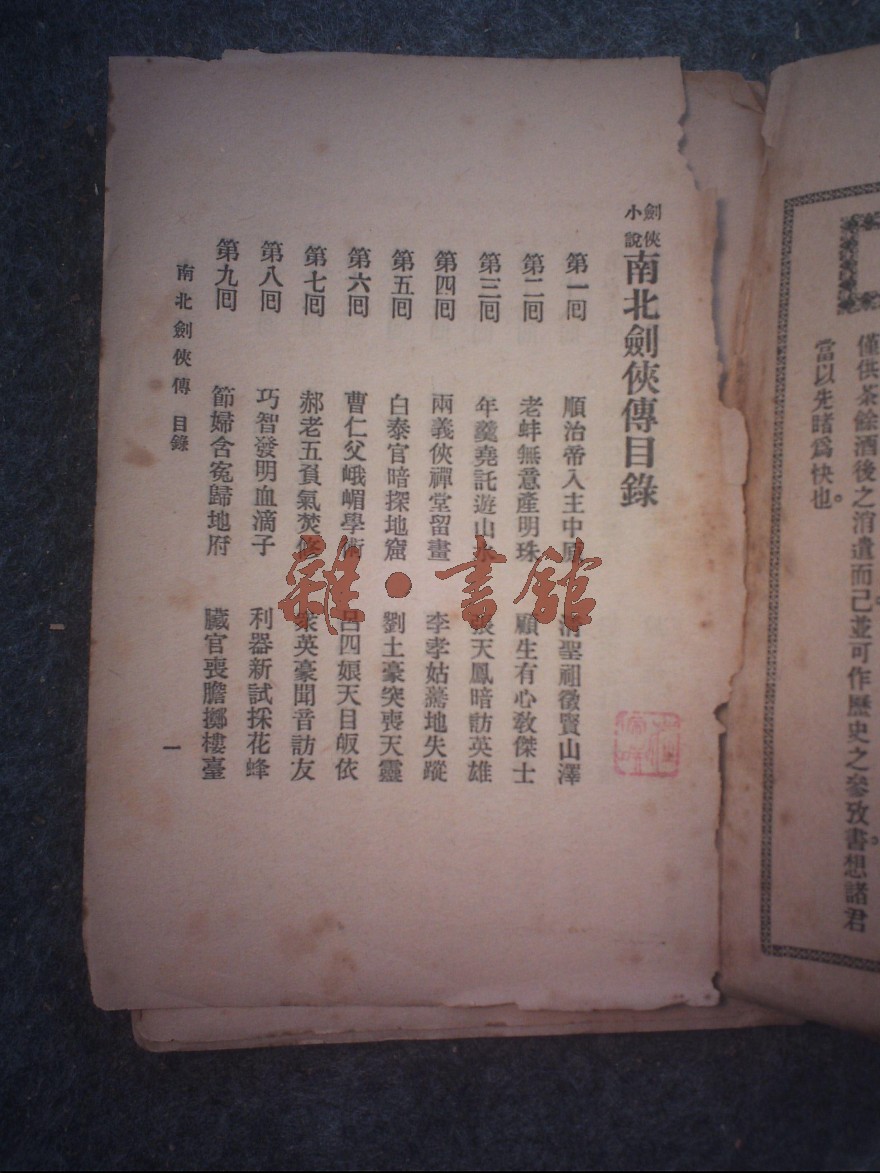 僅供茶餘酒後之消遣而已並可作歷史之參攷書想諸君
當以先睹爲快也。
劍俠小說 南北劍俠傳目錄
第一回 順治帝入主中原 清聖祖徵賢山澤
第二回 老蚌無意產明珠 顧生有心敎傑士
第三回 年羹堯託遊山水 張天鳳暗訪英雄
第四回 兩義俠禪堂留畫 李孝姑驀地失蹤
第五回 白泰官暗探地窟 劉土豪突喪天靈
第六回 曹仁父峨嵋學術 呂四娘天目皈依
第七回 郝老五負氣焚修 衆英豪聞音訪友
第八回 巧智發明血滴子 利器新試採花蜂
第九回 節婦含寃歸地府 臟官喪膽擲樓臺
南北劍俠傳 目錄
一
雜·書館